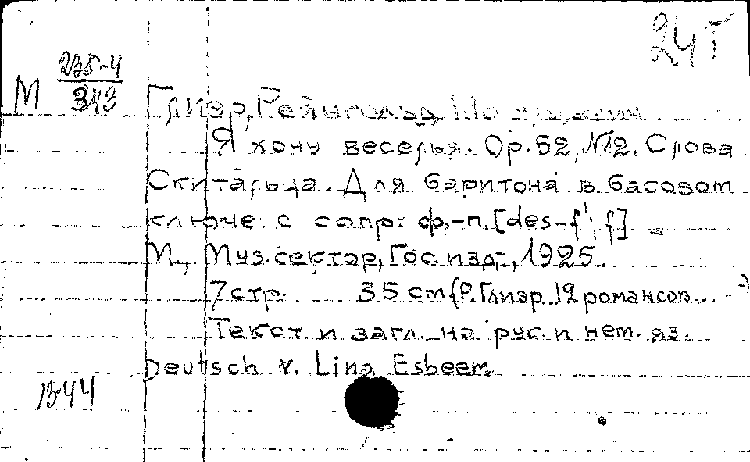 24Т
М 235-4
343
Глиэр, Рейнгольд Морицевич
Я хочу веселья. Op. 52, №2. Слова
Скитальца. Для баритона в басовом
ключе с сопр. ф.-п. [des-f¹; f]
М., Муз. сектор, Госиздат, 1925.
7 стр. 35 cm (Р. Глиэр. 12 романсов...
Текст и загл. на рус. и нем. яз.
Deutsch v. Lina Esbeer.
1344